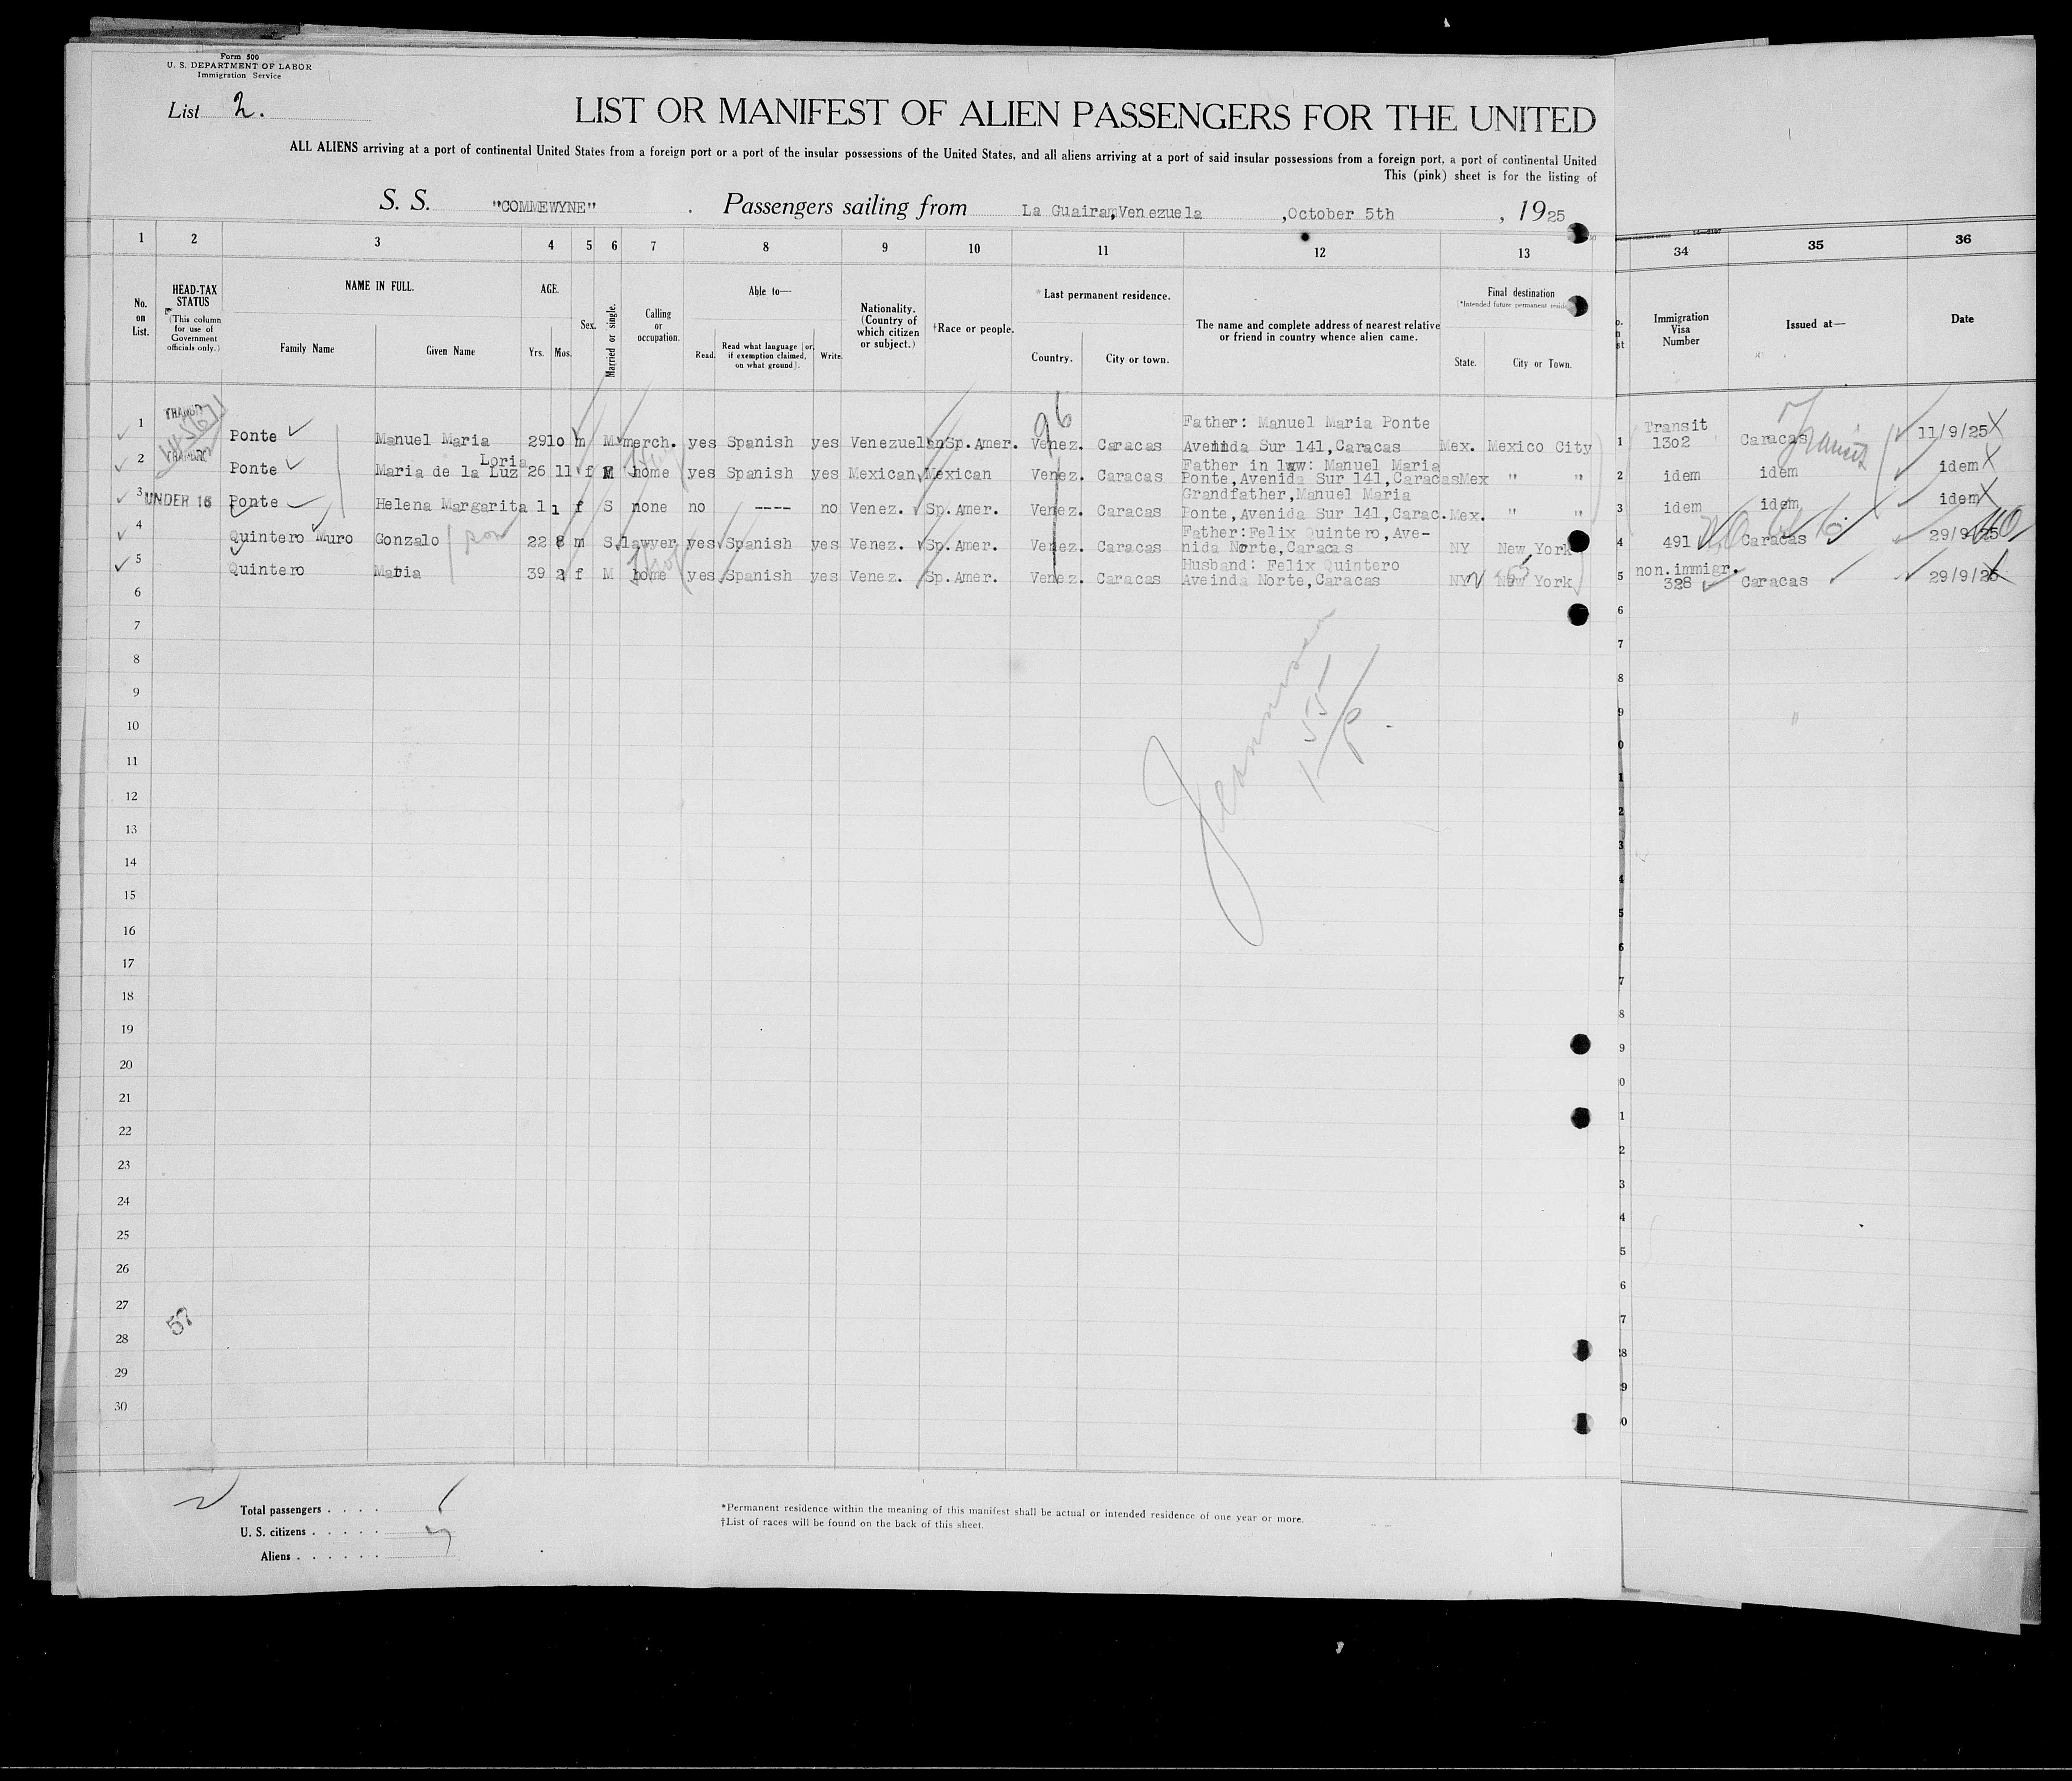 Form 500
U. S. DEPARTMENT OF LABOR
Immigration Service
List 2.
LIST OR MANIFEST OF ALIEN PASSENGERS FOR THE UNITED
ALL ALIENS arriving at a port of continental United States from a foreign port or a port of the insular possessions of the United States, and all aliens arriving at a port of said insular possessions from a foreign port, a port of continental United
This (pink) sheet is for the listing of
S. S. "COMMEWYNE" . Passengers sailing from La Guaira,Venezuela ,October 5th , 1925
1 2 3 4 5 6 7 8 9 10 11 12 13 34 35 36
No. on List.
HEAD-TAX STATUS
(This column for use of Government officials only.)
NAME IN FULL.
Family Name Given Name
AGE.
Yrs. Mos.
Sex.
Married or single.
Calling or occupation.
Able to—
Read. Read what language [or, if exemption claimed, on what ground]. Write.
Nationality. (Country of which citizen or subject.)
†Race or people.
*Last permanent residence.
Country. City or town.
The name and complete address of nearest relative or friend in country whence alien came.
Final destination
State. City or Town.
Immigration Visa Number
Issued at—
Date
TRANSIT
Father: Manuel Maria Ponte Transit
1 Ponte Manuel Maria 29 10 m M merch. yes Spanish yes Venezuelan Sp.Amer. Venez. Caracas Avenida Sur 141,Caracas Mex. Mexico City 1 1302 Caracas Transit 11/9/25
TRANSIT
Loria Father in law: Manuel Maria
2 Ponte Maria de la Luz 26 11 f M home yes Spanish yes Mexican Mexican Venez. Caracas Ponte,Avenida Sur 141,Caracas Mex " " 2 idem idem idem
Grandfather,Manuel Maria
3 UNDER 16 Ponte Helena Margarita 1 1 f S none no ---- no Venez. Sp.Amer. Venez. Caracas Ponte,Avenida Sur 141,Carac. Mex. " " 3 idem idem idem
Father:Felix Quintero,Ave-
4 Quintero Muro Gonzalo son 22 8 m S lawyer yes Spanish yes Venez. Sp.Amer. Venez. Caracas nida Norte,Caracas NY New York 4 491 Caracas 29/9/25
Husband: Felix Quintero non.immigr.
5 Quintero Maria 39 2 f M home yes Spanish yes Venez. Sp.Amer. Venez. Caracas Aveinda Norte,Caracas NY New York 5 328 Caracas 29/9/25
96
6
7
8
9
10
11
12
13
14
15
16
17
18
19
20
21
22
23
24
25
26
27
28
29
30
57
Total passengers . . . .
U. S. citizens . . . . .
Aliens . . . . . .
*Permanent residence within the meaning of this manifest shall be actual or intended residence of one year or more.
†List of races will be found on the back of this sheet.